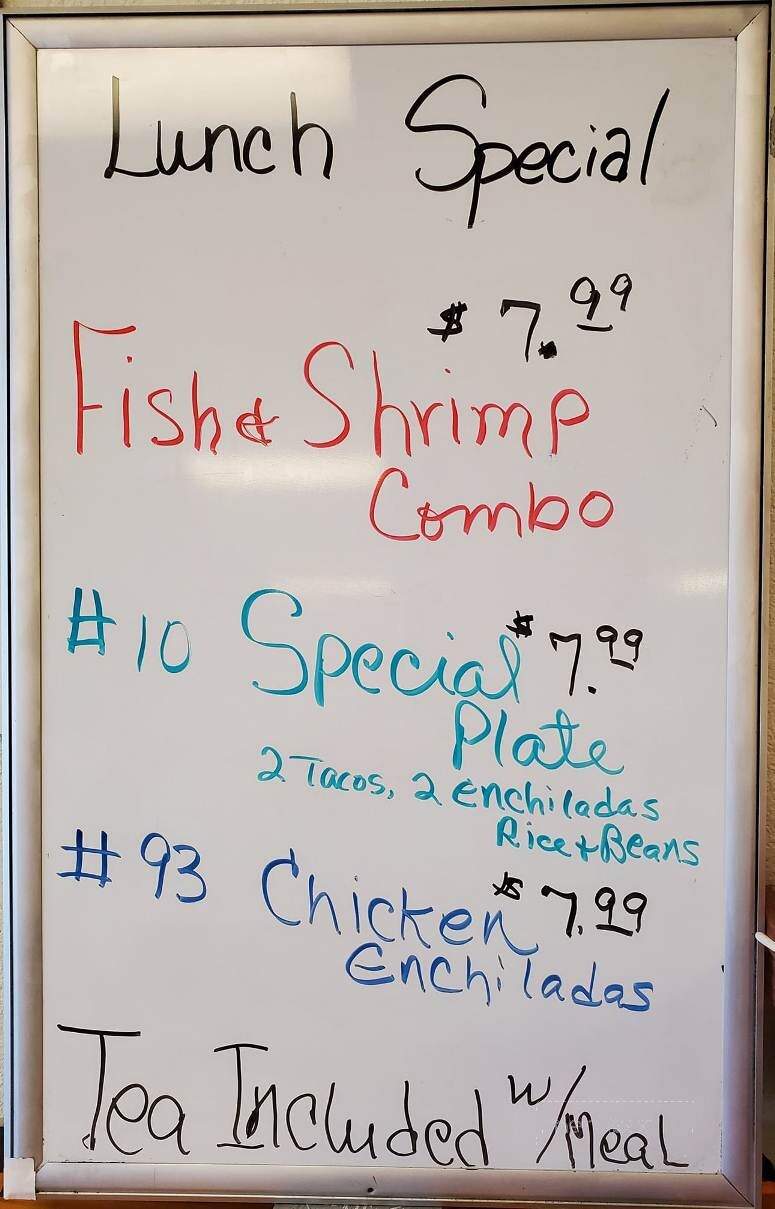 Lunch Special
$ 7.99
Fish & Shrimp
Combo
#10 Special $ 7.99
Plate
2 Tacos, 2 Enchiladas
Rice + Beans
#93 Chicken $ 7.99
Enchiladas
Tea Included w/Meal